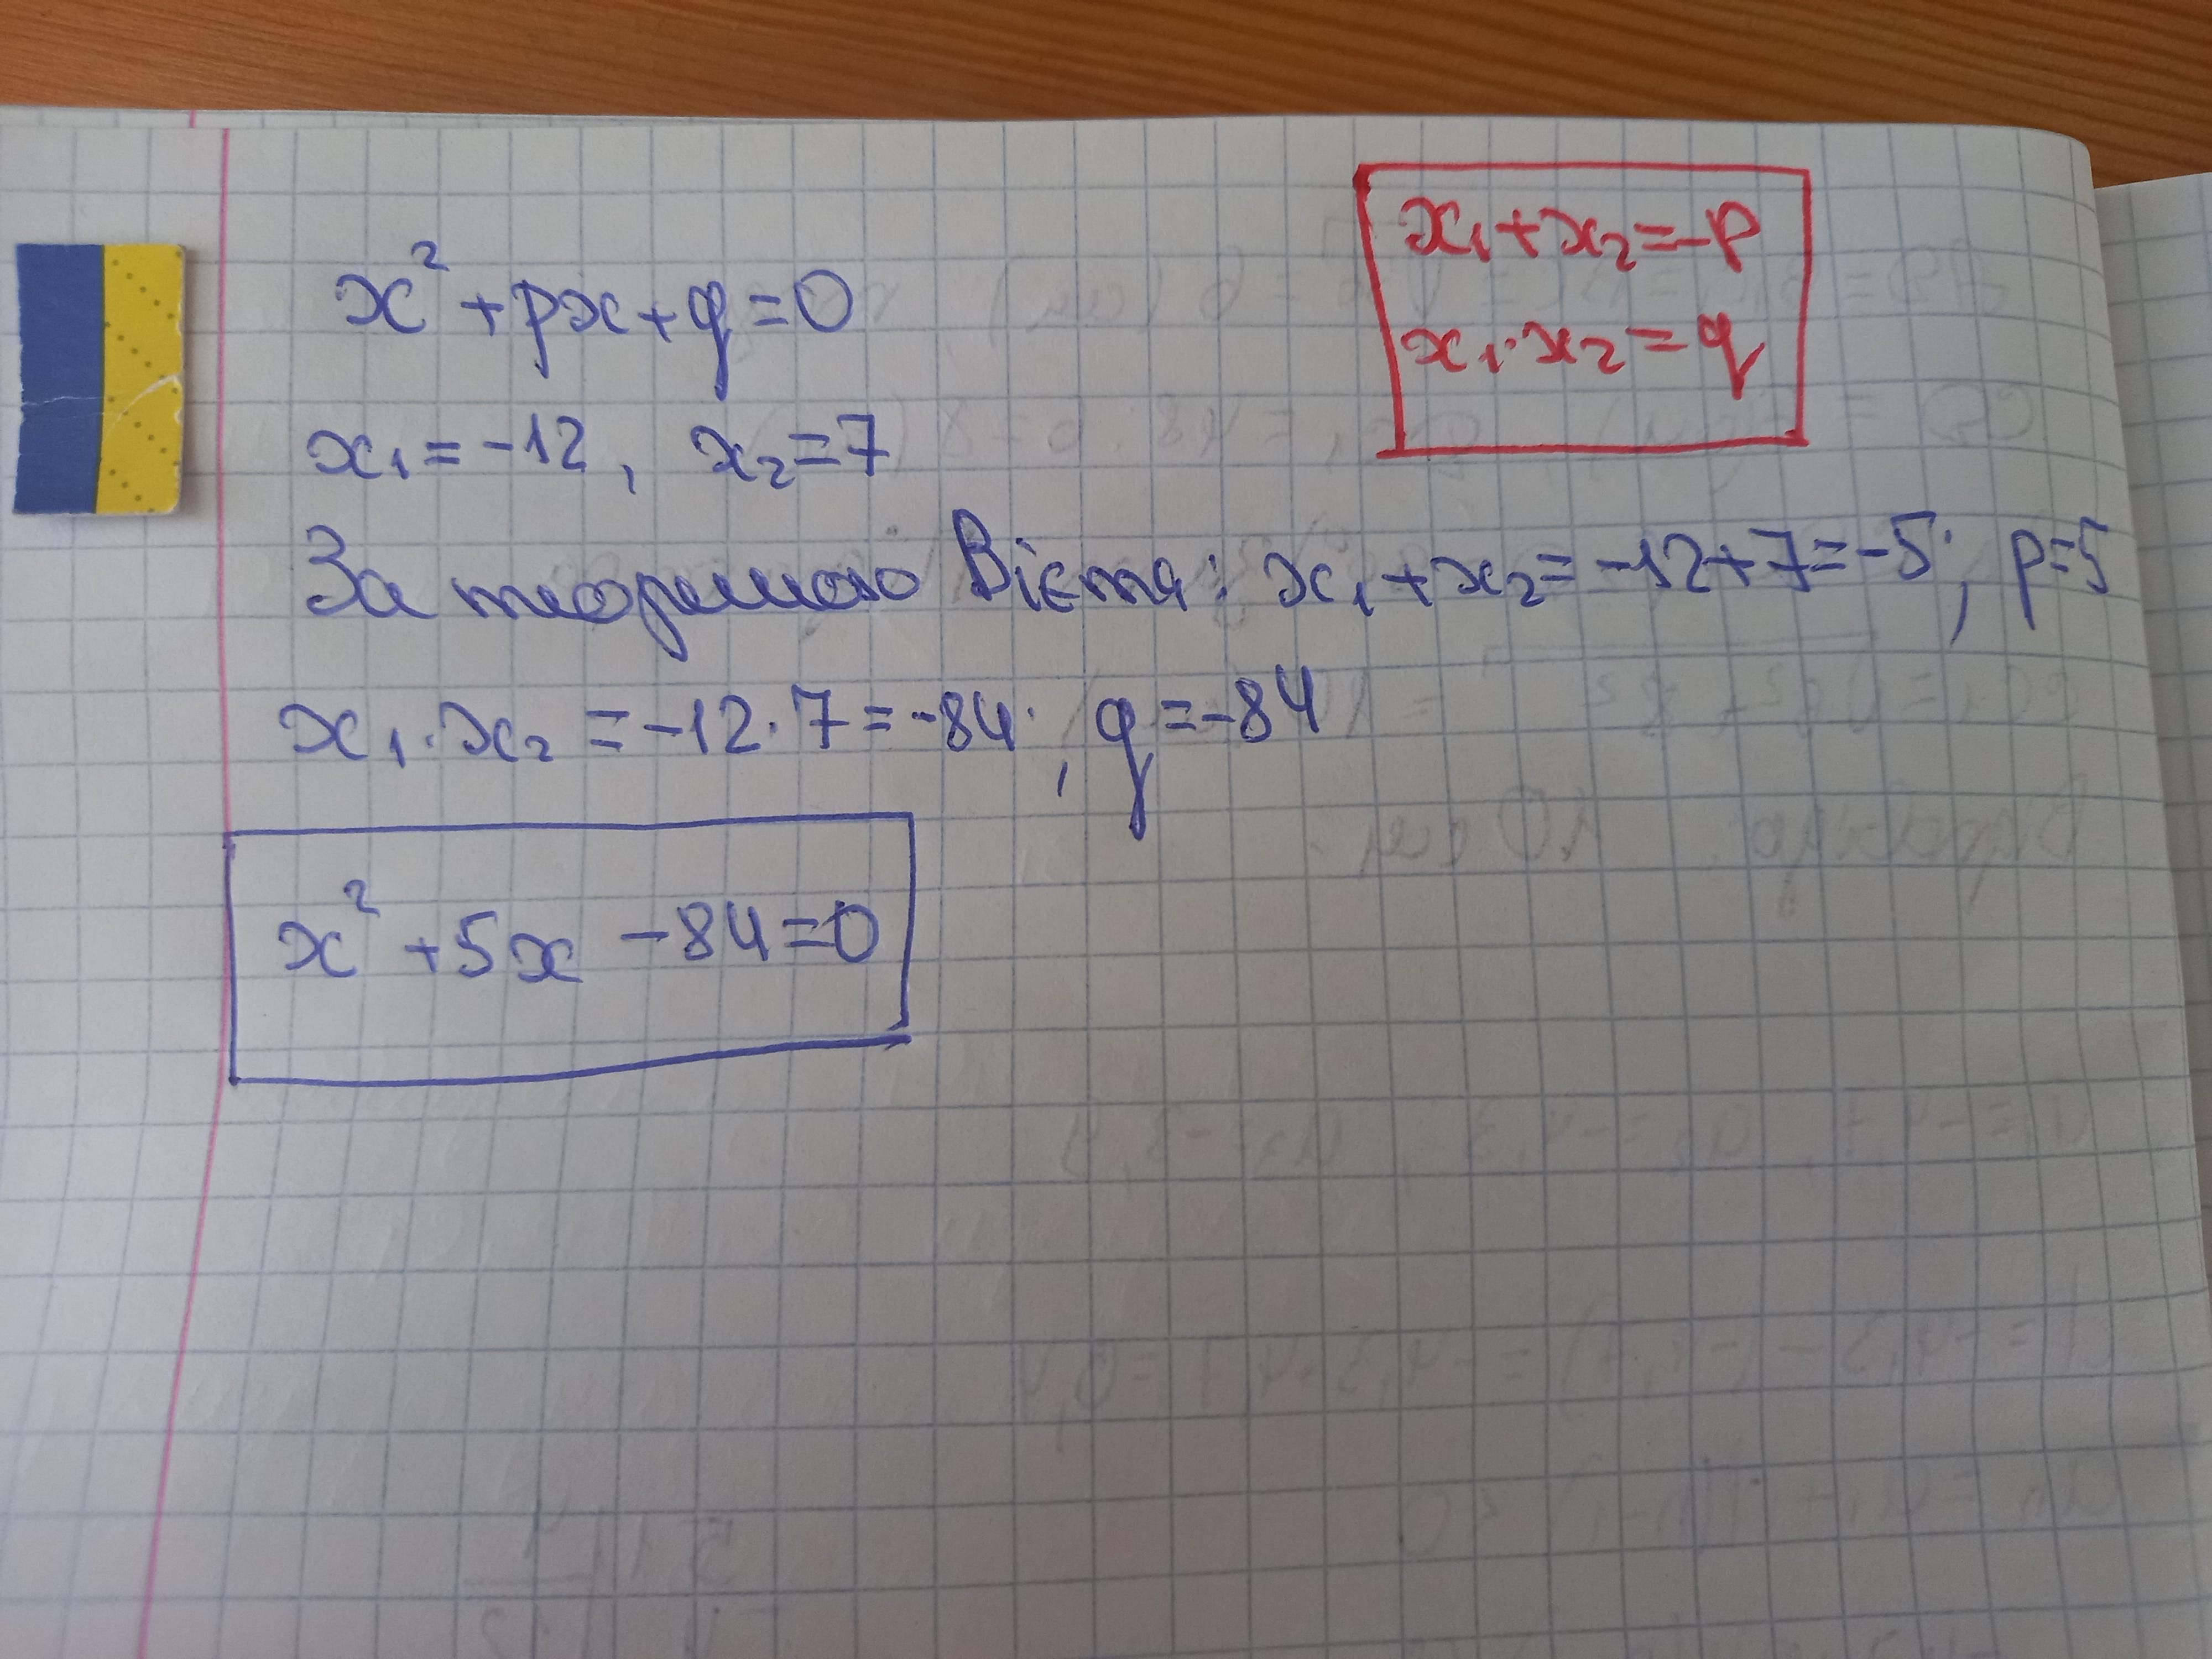 x² + px + q = 0
x₁ + x₂ = -p
x₁ · x₂ = q
x₁ = -12, x₂ = 7
За теоремою Вієта: x₁ + x₂ = -12 + 7 = -5; p = 5
x₁ · x₂ = -12 · 7 = -84; q = -84
x² + 5x - 84 = 0